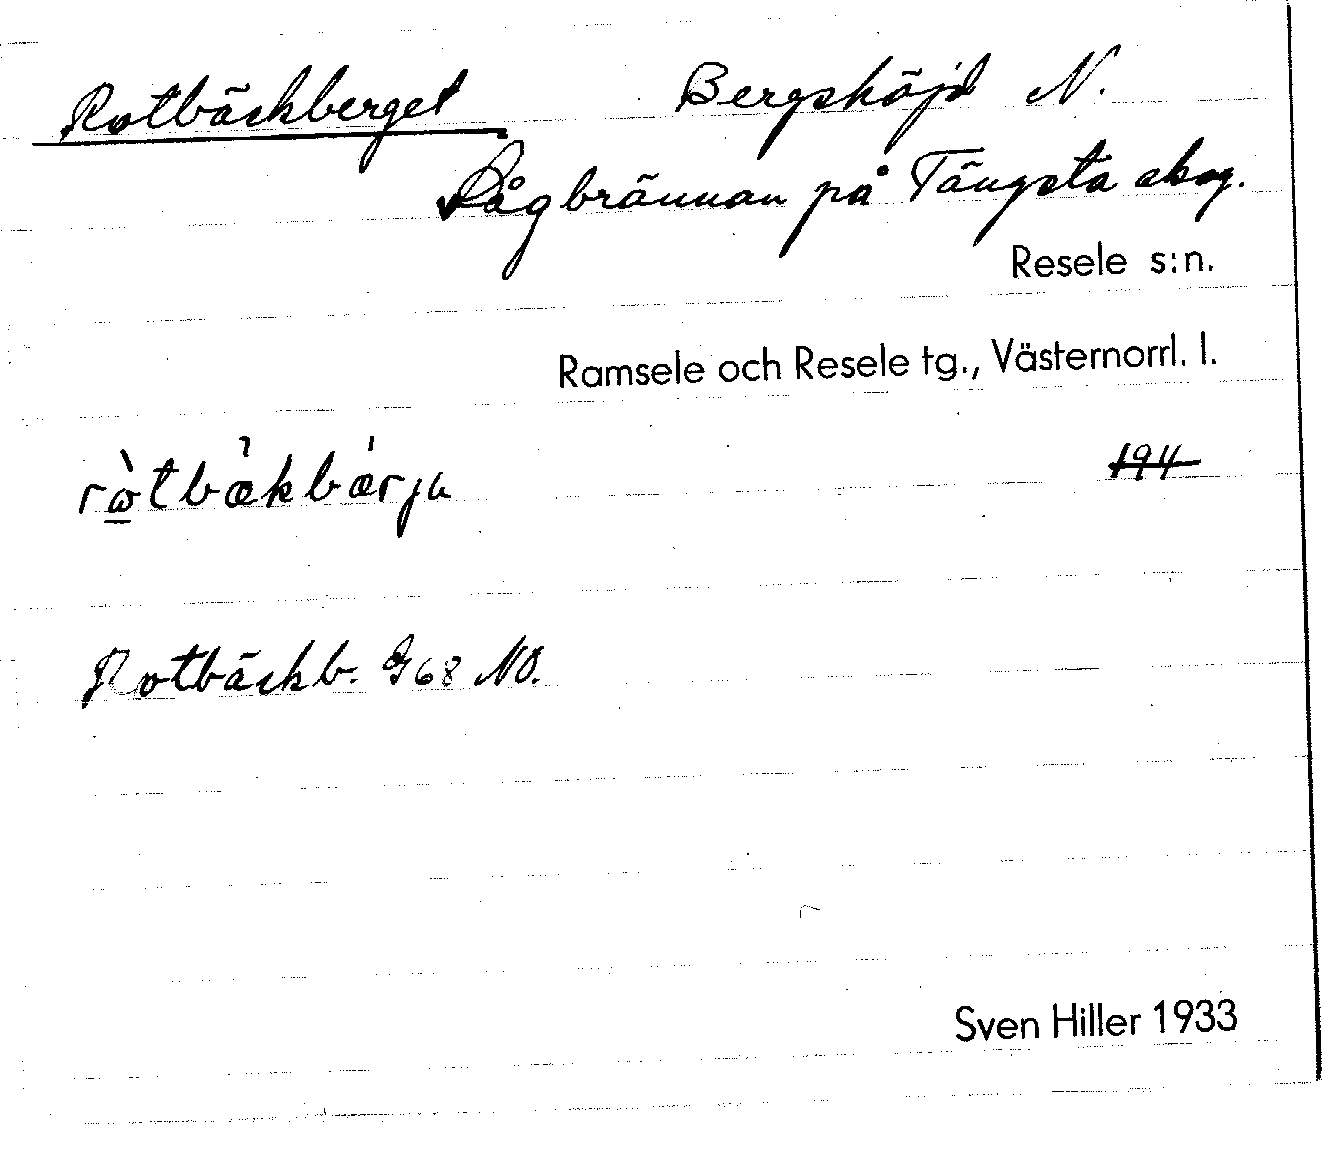 Rotbäckberget Bergshöjd N.
Rågbrännan på Tängsta skog.
Resele s:n.
Ramsele och Resele tg., Västernorrl. l.
194
Rotbäckb. G68 NO.
Sven Hiller 1933